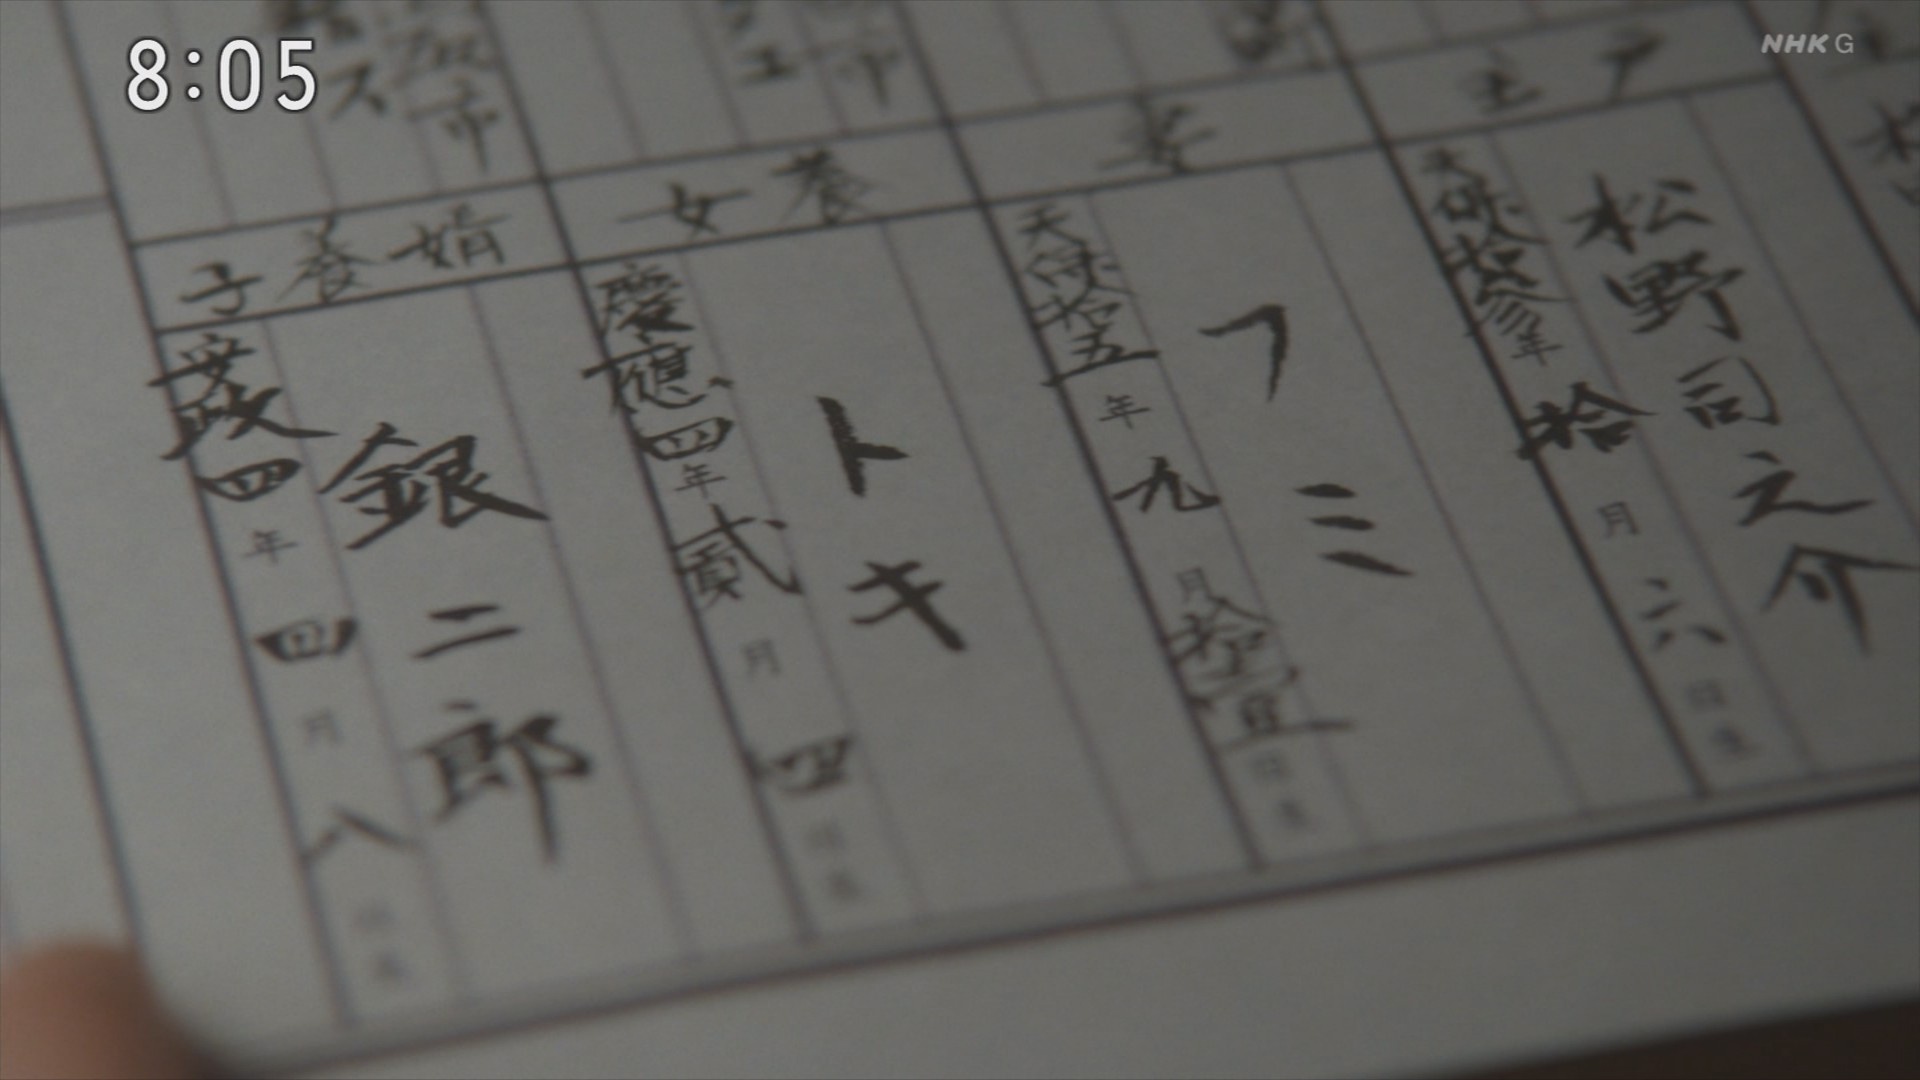 8:05
NHK G
戸主
松野司之介
天保拾参年拾月六日生
妻
フミ
天保拾五年九月拾壹日生
養女
トキ
慶應四年貳月四日生
婿養子
銀二郎
安政四年四月八日生